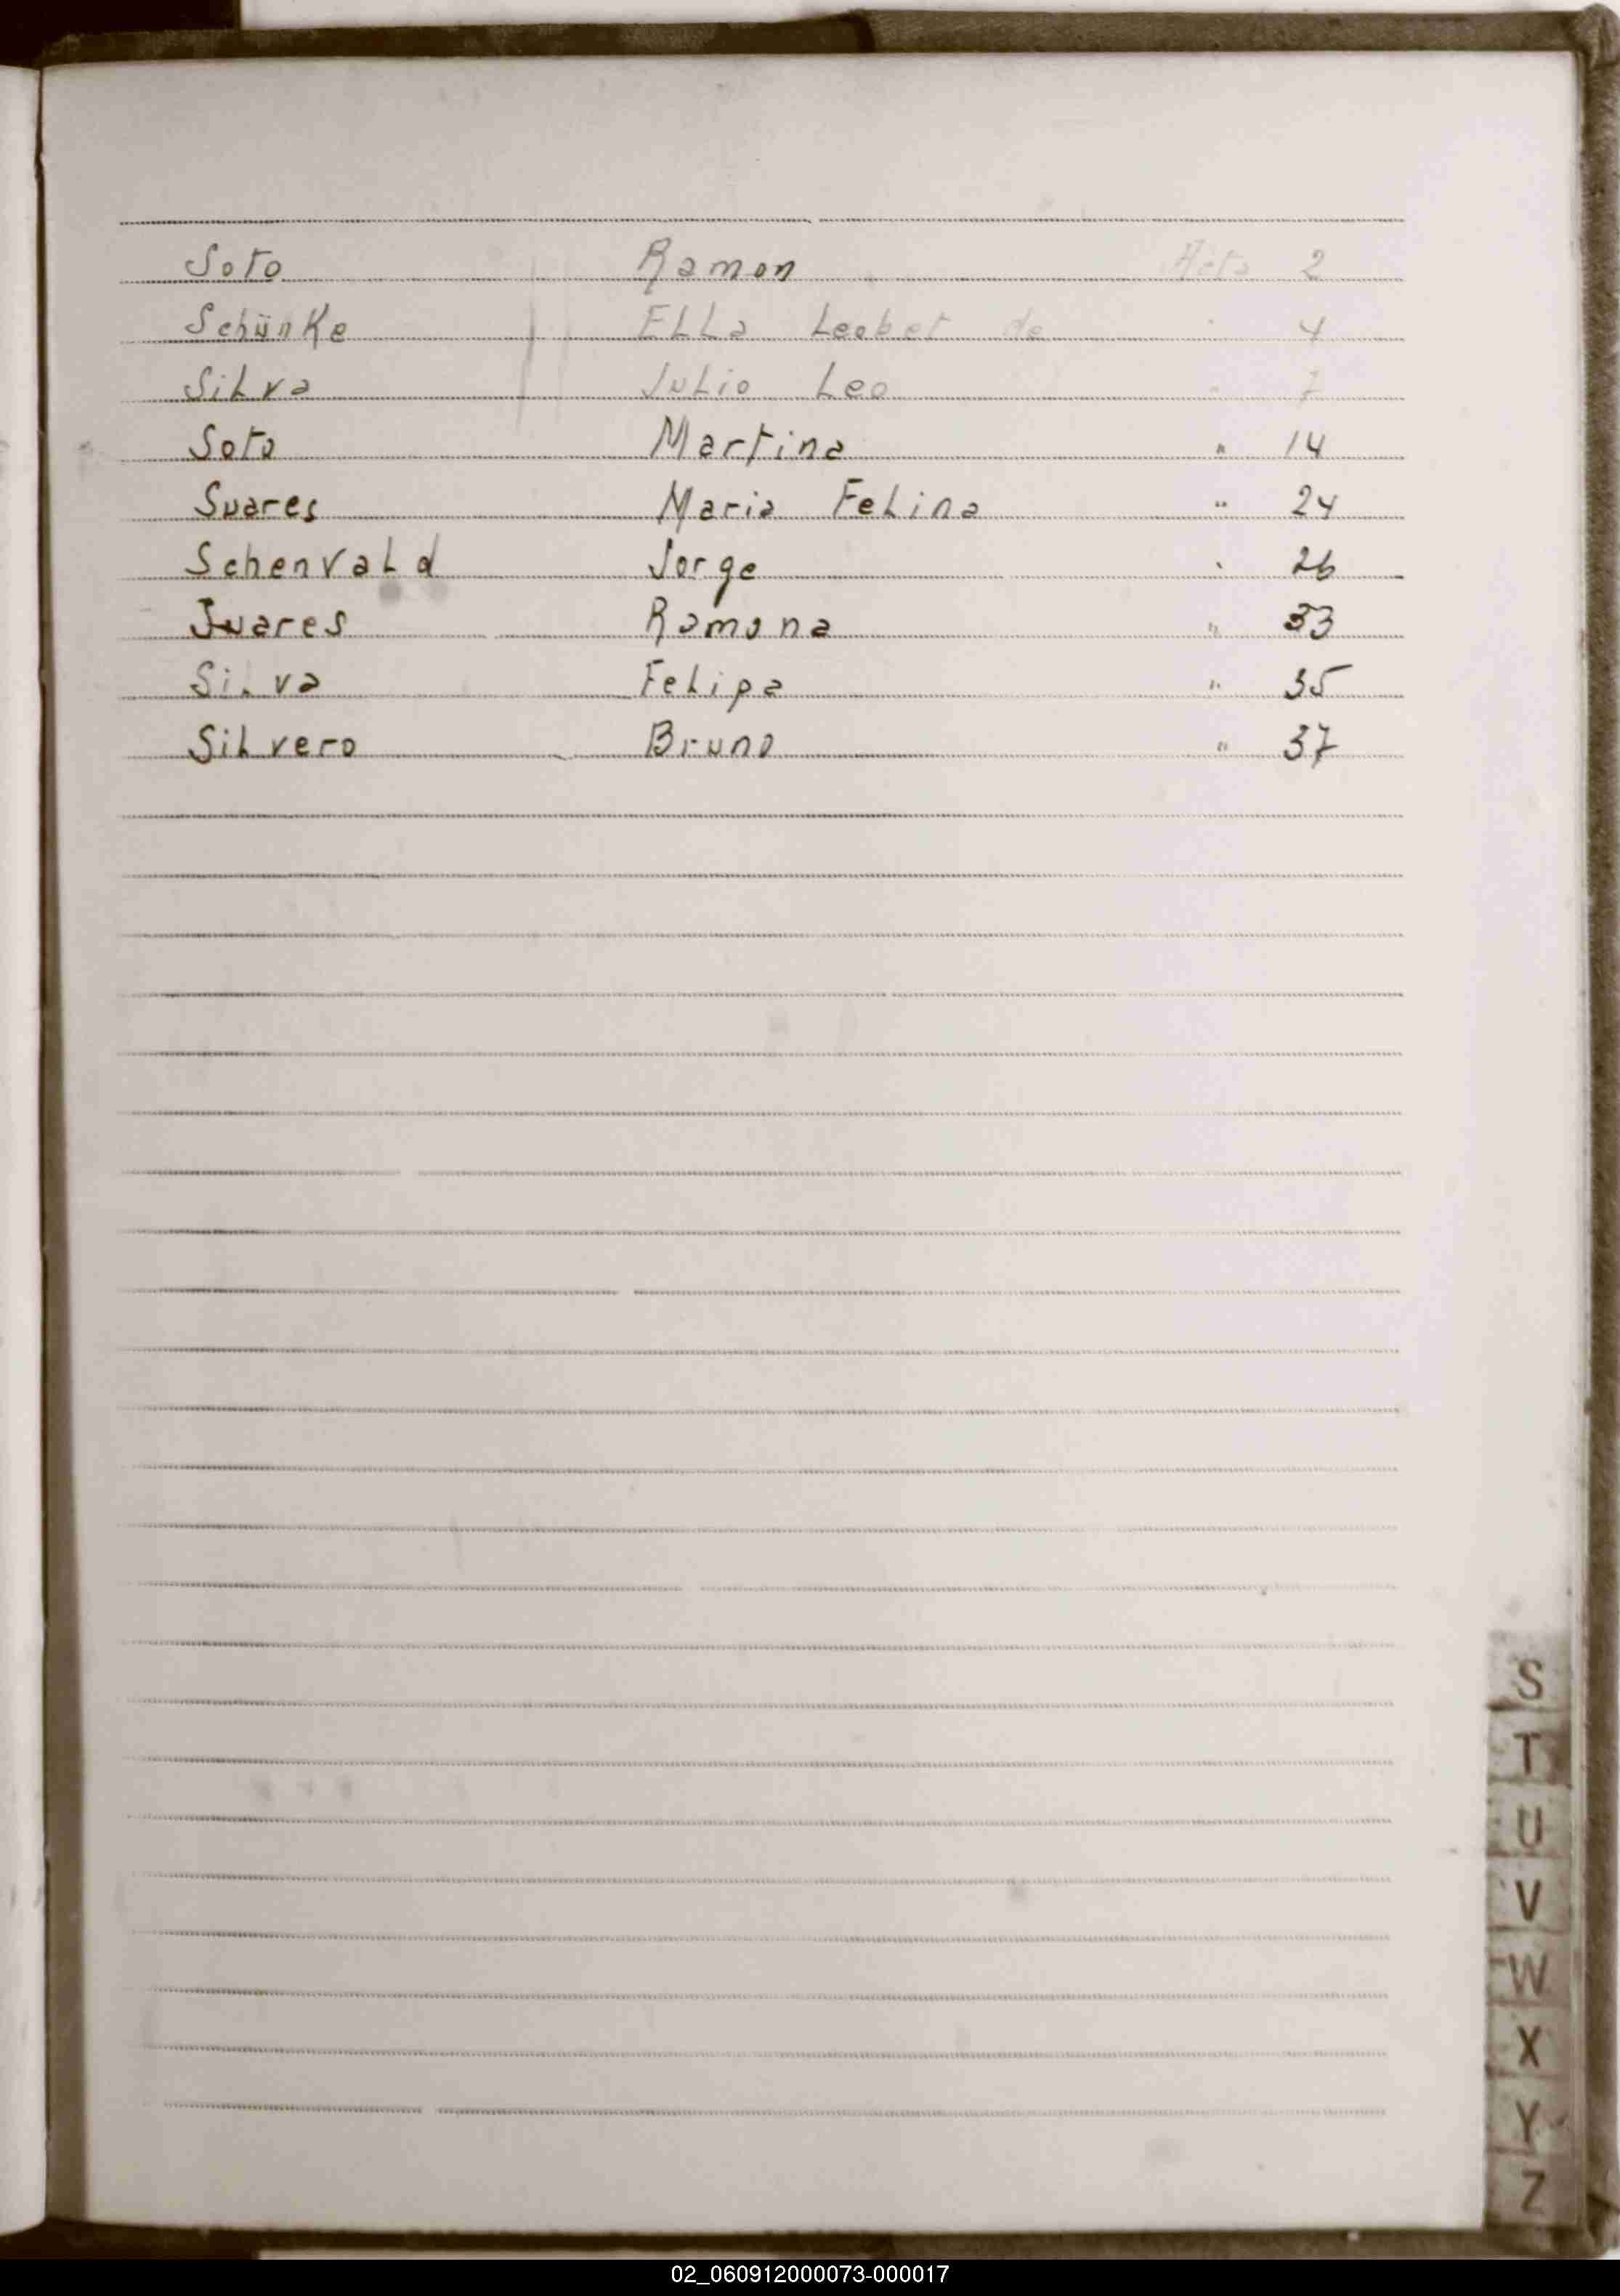 Soto Ramon Acta 2
Schünke Ella Leobet de " 4
Silva Julio Leo " 7
Soto Martina " 14
Suares Maria Felina " 24
Schenvald Jorge " 26
Suares Ramona " 33
Silva Felipa " 35
Silvero Bruno " 37
S
T
U
V
W
X
Y
Z
02_060912000073-000017